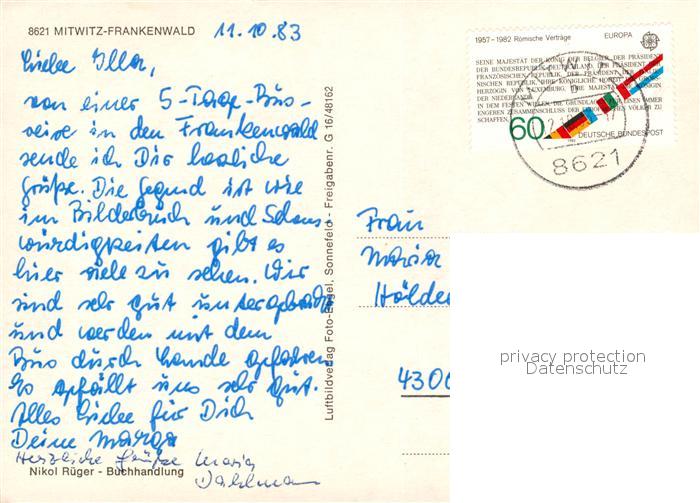 8621 MITWITZ-FRANKENWALD
11.10.83
Liebe Illa,
von einer 5-Tage-Bus-
reise in den Frankenwald
sende ich Dir herzliche
Grüße. Die Gegend ist wie
im Bilderbuch und Sehens-
würdigkeiten gibt es
hier viele zu sehen. Wir
sind sehr gut untergebracht
und werden mit dem
Bus durch Lande gefahren
Es gefällt uns sehr gut.
Alles Liebe für Dich
Deine Marga
Herzliche Grüße Maria
Dahlmann
Nikol Rüger - Buchhandlung
Luftbildverlag Foto-Engel, Sonnefeld - Freigabenr. G 16/48162
1957-1982 Römische Verträge EUROPA
SEINE MAJESTÄT DER KÖNIG DER BELGIER, DER PRÄSIDENT
DER BUNDESREPUBLIK DEUTSCHLAND, DER PRÄSIDENT DER
FRANZÖSISCHEN REPUBLIK, DER PRÄSIDENT DER
HERZOGIN VON LUXEMBURG, IHRE MAJESTÄT DIE KÖNIGIN
DER NIEDERLANDE
IN DEM FESTEN WILLEN, DIE GRUNDLAGEN FÜR EINEN IMMER
ENGEREN ZUSAMMENSCHLUSS DER EUROPÄISCHEN VÖLKER ZU
SCHAFFEN
60
DEUTSCHE BUNDESPOST
8621
Frau
Maria
Hölder
4300
privacy protection
Datenschutz